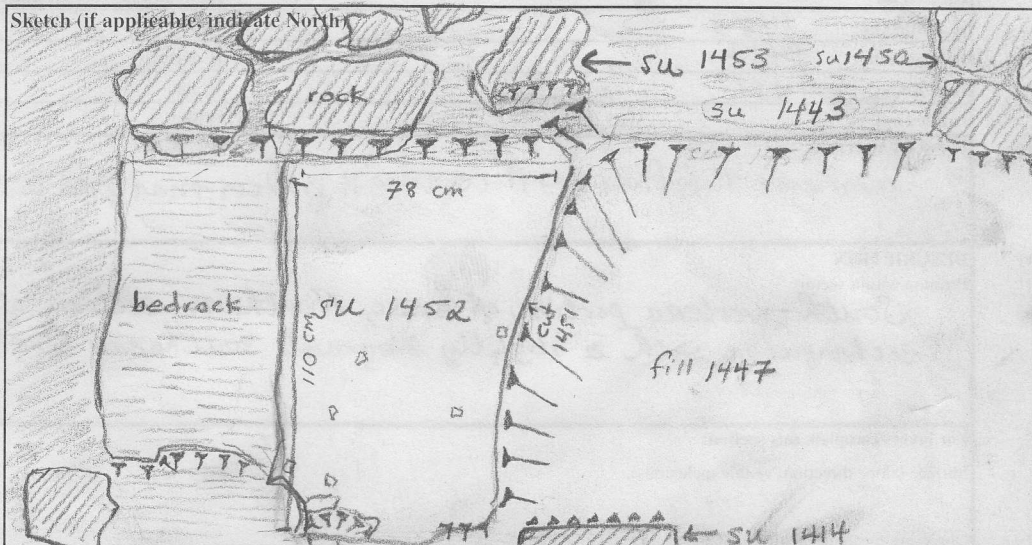 Sketch (if applicable, indicate North)
su 1453
su 1450
rock
su 1443
78 cm
bedrock
su 1452
110 cm
cut
1451
fill 1447
su 1414